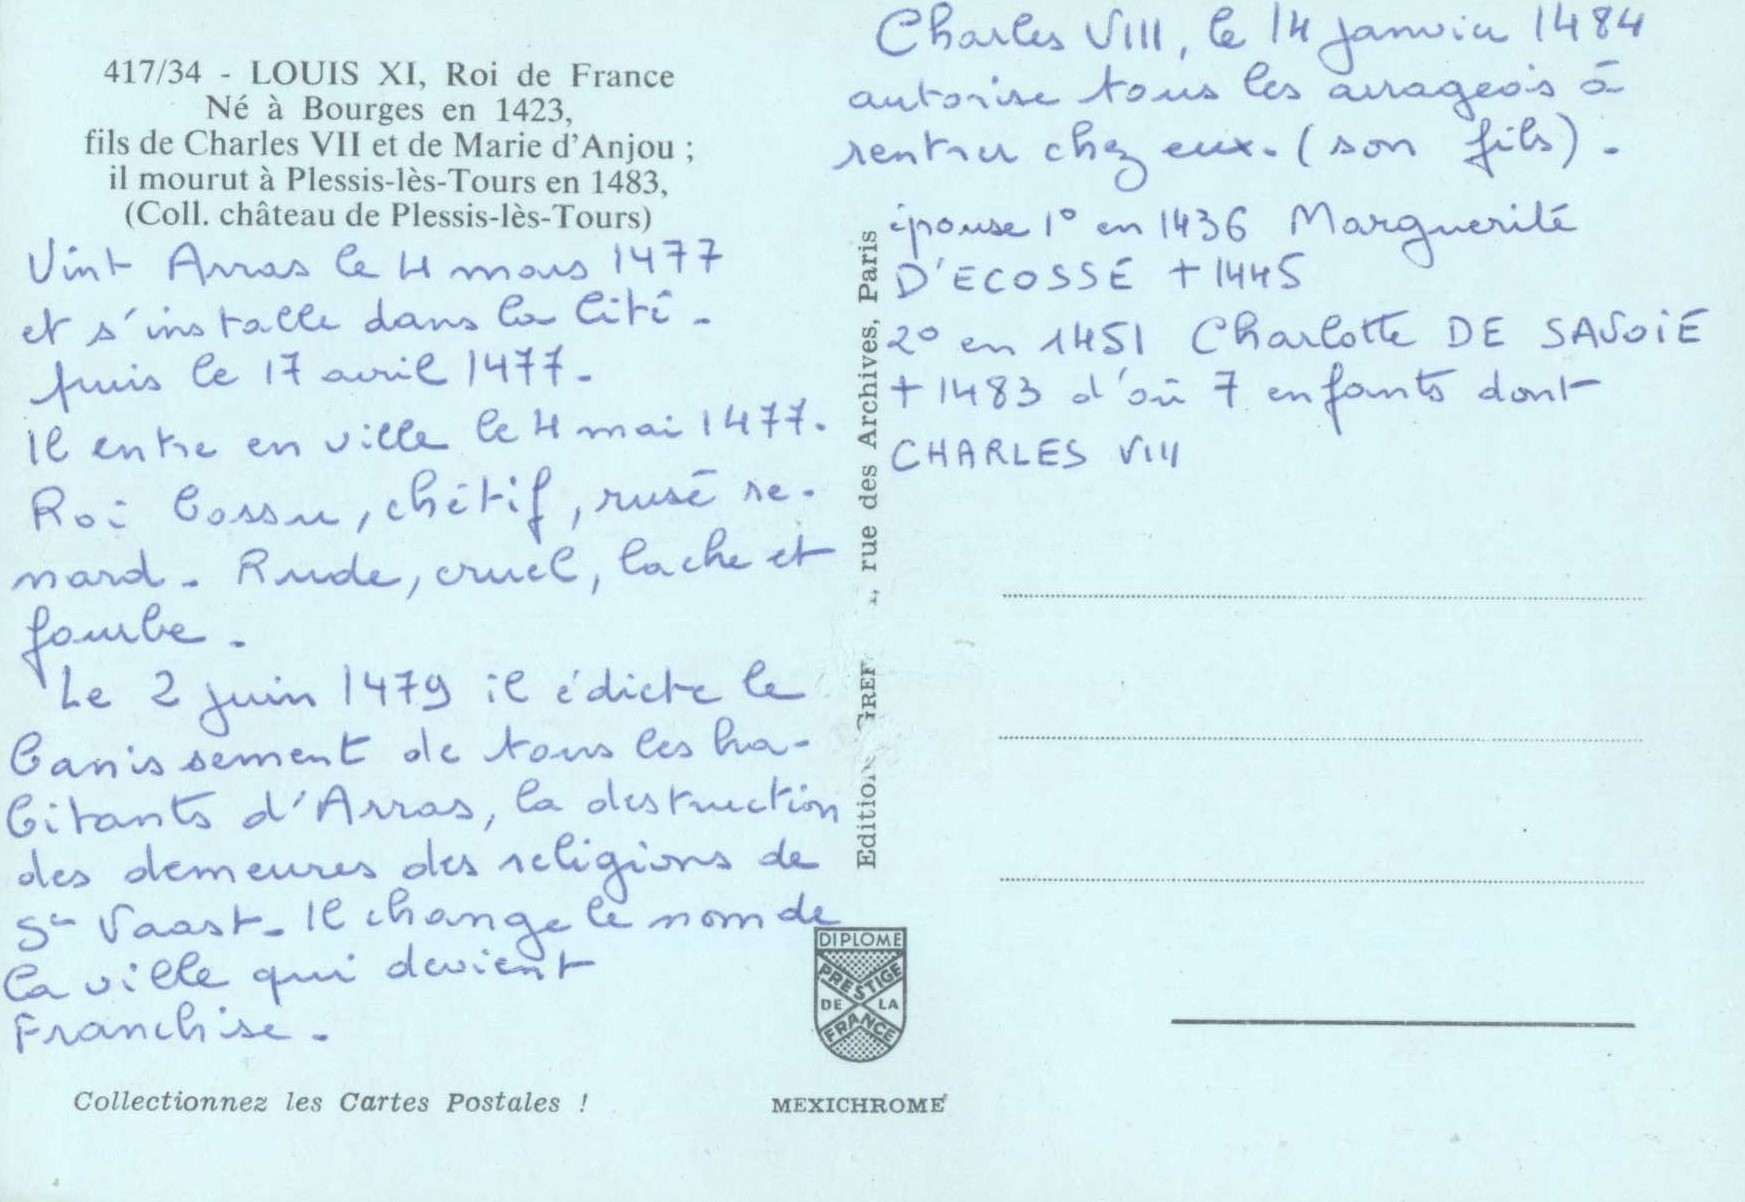 417/34 - LOUIS XI, Roi de France
Né à Bourges en 1423,
fils de Charles VII et de Marie d'Anjou ;
il mourut à Plessis-lès-Tours en 1483,
(Coll. château de Plessis-lès-Tours)
Vint Arras le 4 mars 1477
et s'installe dans la Cité -
puis le 17 avril 1477 -
Il entre en ville le 4 mai 1477.
Roi bossu, chétif, rusé re-
nard - Rude, cruel, lache et
fourbe -
Le 2 juin 1479 il édicte le
banissement de tous les ha-
bitants d'Arras, la destruction
des demeures des religions de
St Vaast - Il change le nom de
la ville qui devient
Franchise -
Collectionnez les Cartes Postales !
Edition GREF , rue des Archives, Paris
DIPLOME
PRESTIGE
DE LA
FRANCE
MEXICHROME
Charles VIII, le 14 janvier 1484
autorise tous les arrageois à
rentrer chez eux. (son fils) -
épouse 1° en 1436 Marguerite
D'ECOSSE + 1445
2° en 1451 Charlotte DE SAVOIE
+ 1483 d'où 7 enfants dont
CHARLES VIII